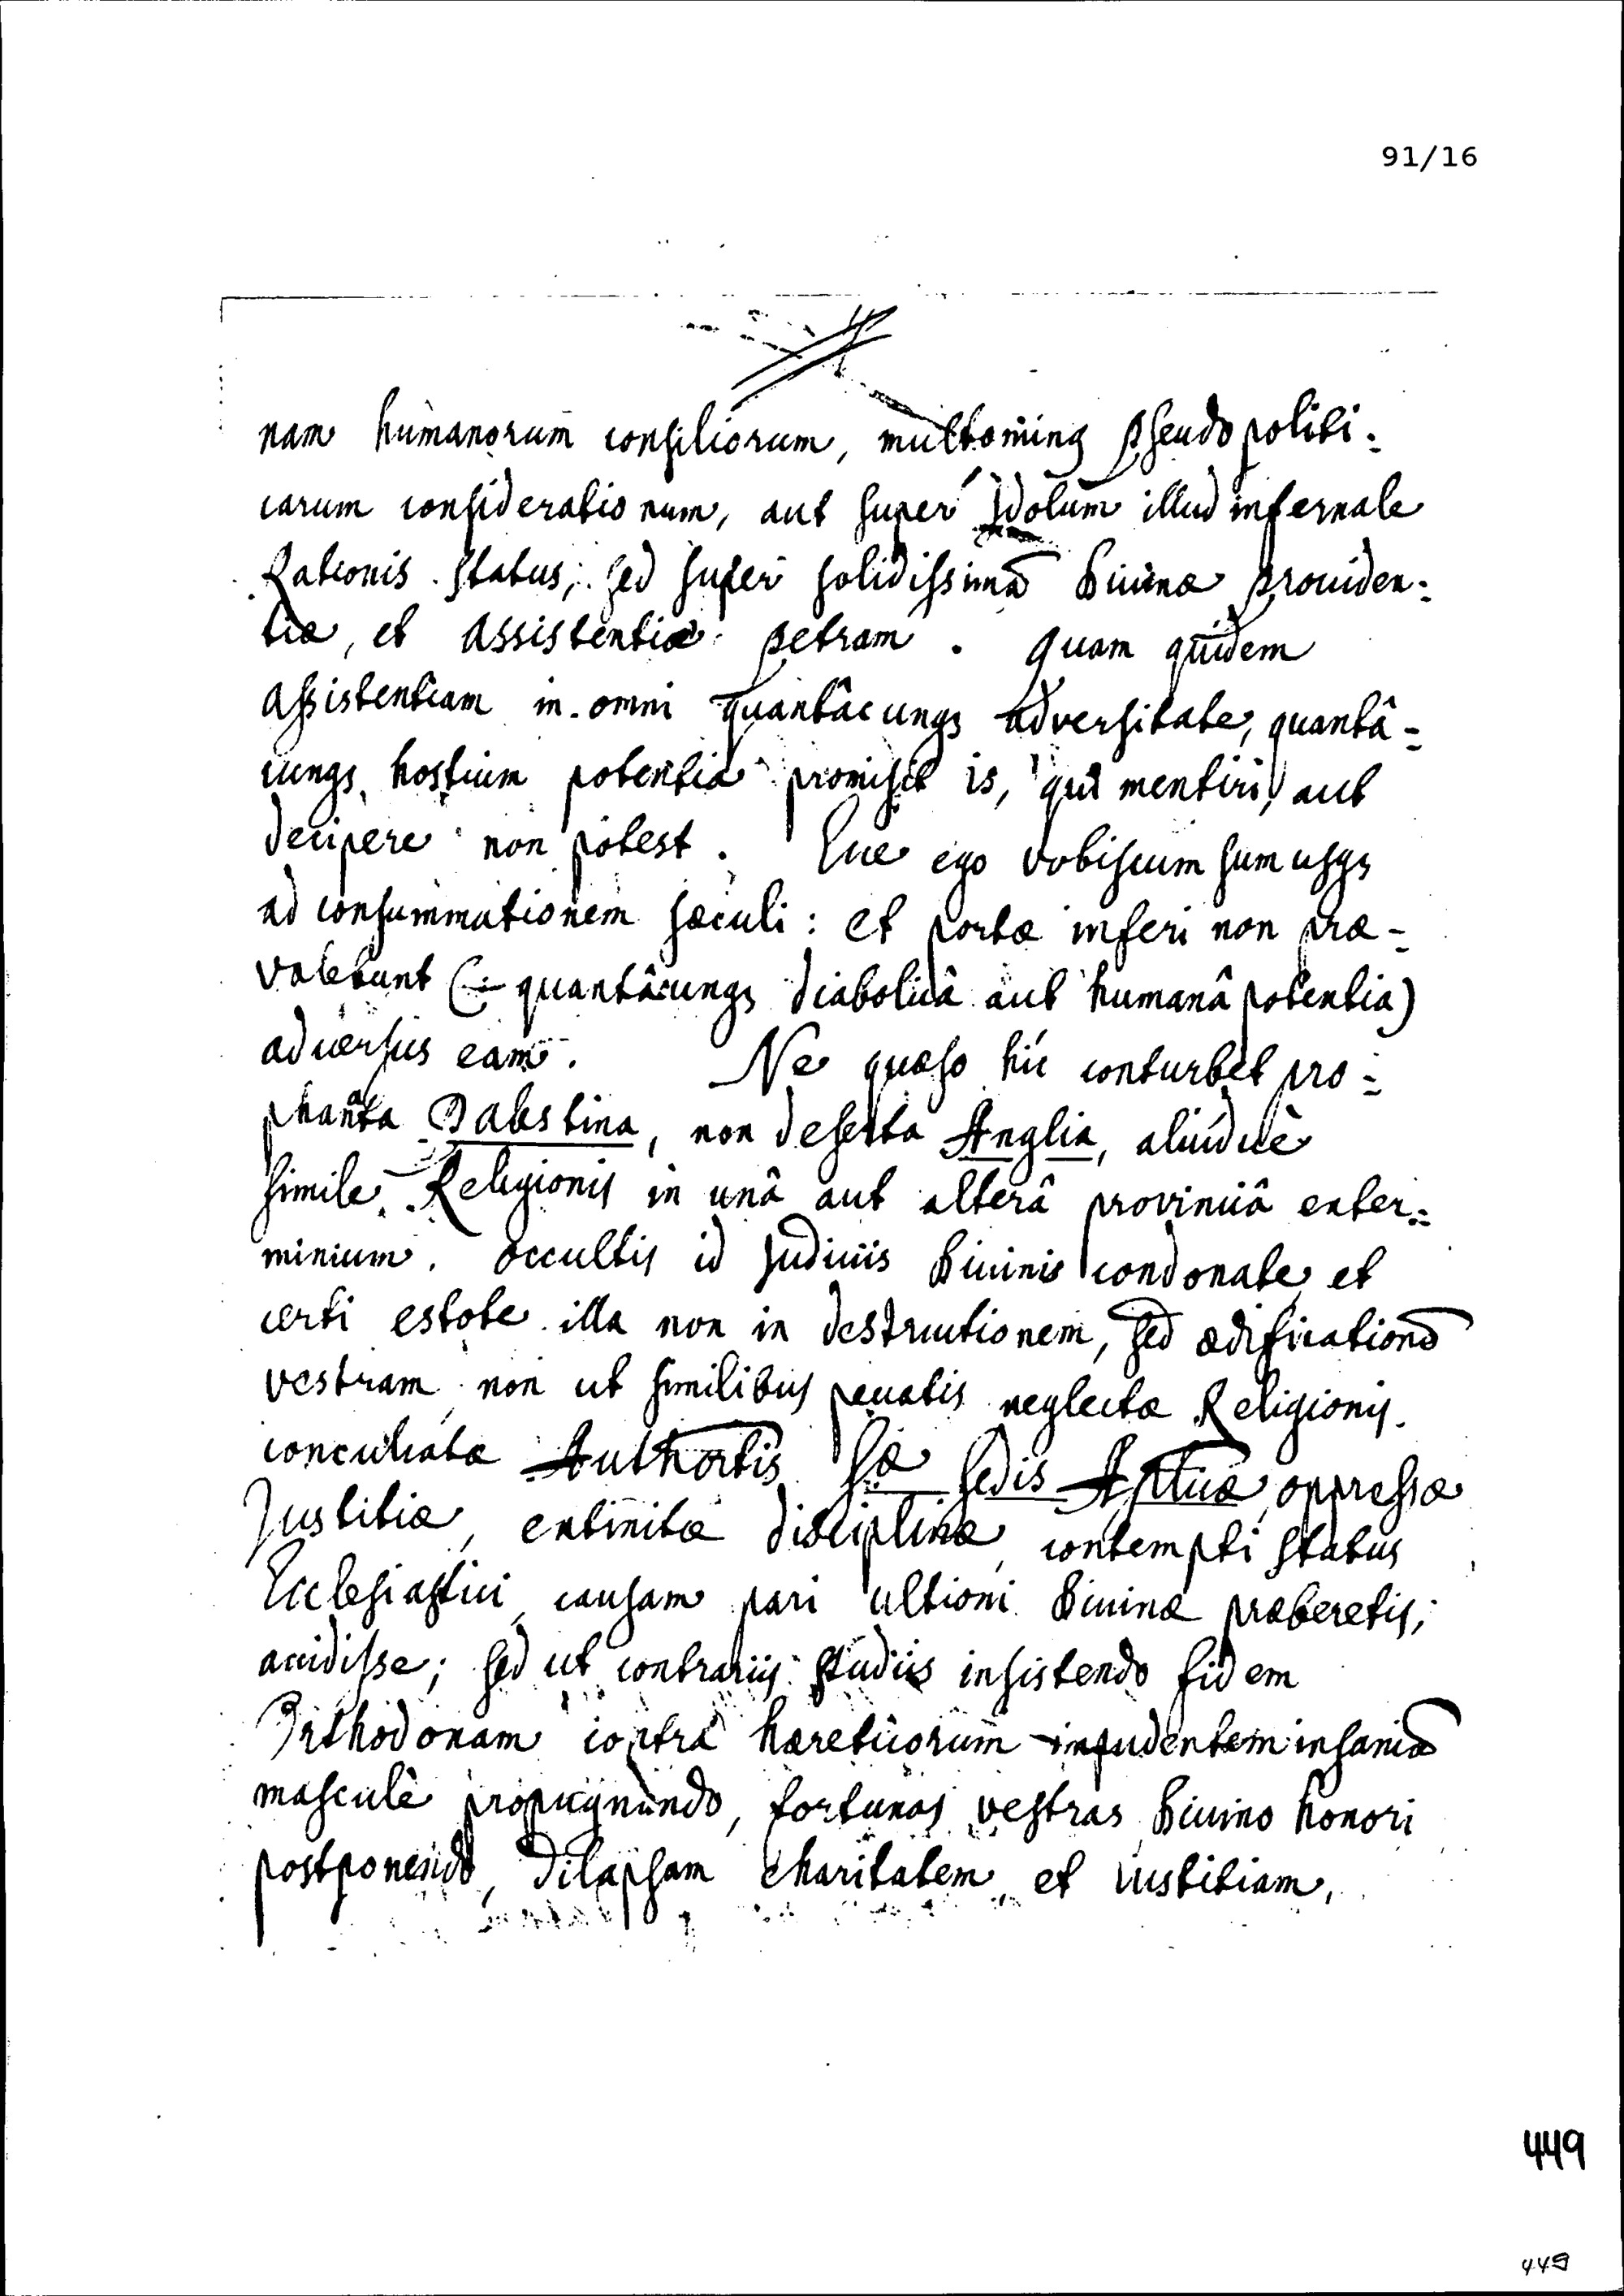 91/16
nam humanorum consiliorum, multominꝰ Pseudo politi=
carum consideratio num, aut super Idolum illud infernale
Rationis status; sed super solidissimā Divinæ Providen=
tiæ, et Assistentiæ petram. Quam quidem
Assistentiam in omni quantâcunqꝫ adversitate, quantâ=
cunqꝫ hostium potentia promisit is, qui mentiri, aut
decipere non potest. Ecce ego vobiscum sum usqꝫ
ad consummationem sæculi: et portæ inferi non præ=
valebunt (quantâcunqꝫ diabolicâ aut humanâ potentia)
adversus eam. Ne quæso hic conturbet pro=
phanata Palæstina, non deserta Anglia, aliudvè
simile Religionis in unâ aut alterâ provinciâ exter=
minium. Occultis id Judiciis Divinis condonate, et
certi estote illa non in destructionem, sed ædificationē
vestram, non ut similibus peccatis neglectæ Religionis,
conculcatæ Authortis Sæ Sedis Apticæ, oppressæ
Justitiæ, extinctæ disciplinæ, contempti Status
Ecclesiastici, causam pari ultioni Divinæ præberetis;
accidisse; sed ut contrariis studiis insistendo fidem
Orthodoxam contra hæreticorum impudentem insaniā
masculè propugnando, fortunas vestras Divino honori
postponendo, dilapsam charitatem, et iustitiam,
449
449